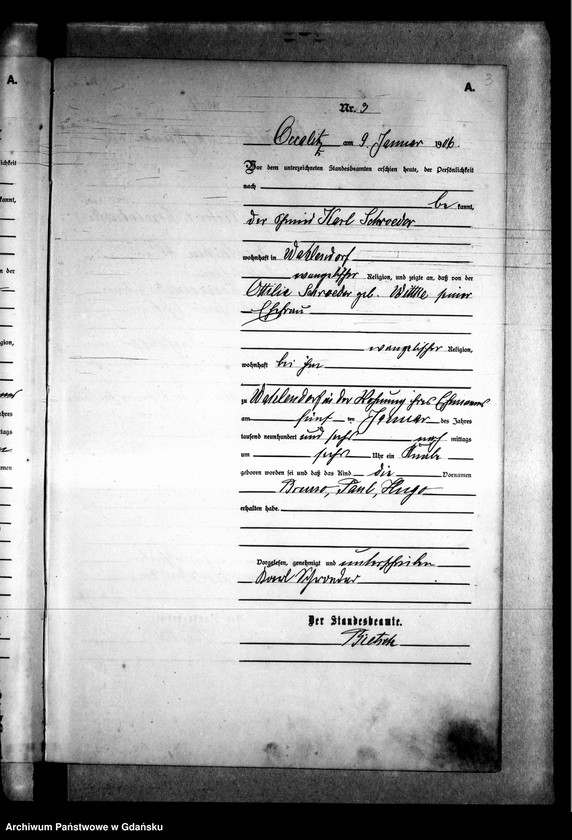 A.
3
A.
Nr. 3
Occalitz am 9. Januar 1906.
Vor dem unterzeichneten Standesbeamten erschien heute, der Persönlichkeit
nach
be kannt,
der Schmied Karl Schroeder
wohnhaft in Wahlendorf
evangelischer Religion, und zeigte an, daß von der
Ottilie Schroeder geb. Wittke seiner
Ehefrau
evangelischer Religion,
wohnhaft bei ihm
zu Wahlendorf in der Wohnung ihres Ehemannes
am fünf ten Januar des Jahres
tausend neunhundert und sechs nach mittags
um sechs Uhr ein Knabe
geboren worden sei und daß das Kind die Vornamen
Bruno, Paul, Hugo
erhalten habe.
Vorgelesen, genehmigt und unterschrieben
Karl Schroeder
Der Standesbeamte.
Archiwum Państwowe w Gdańsku